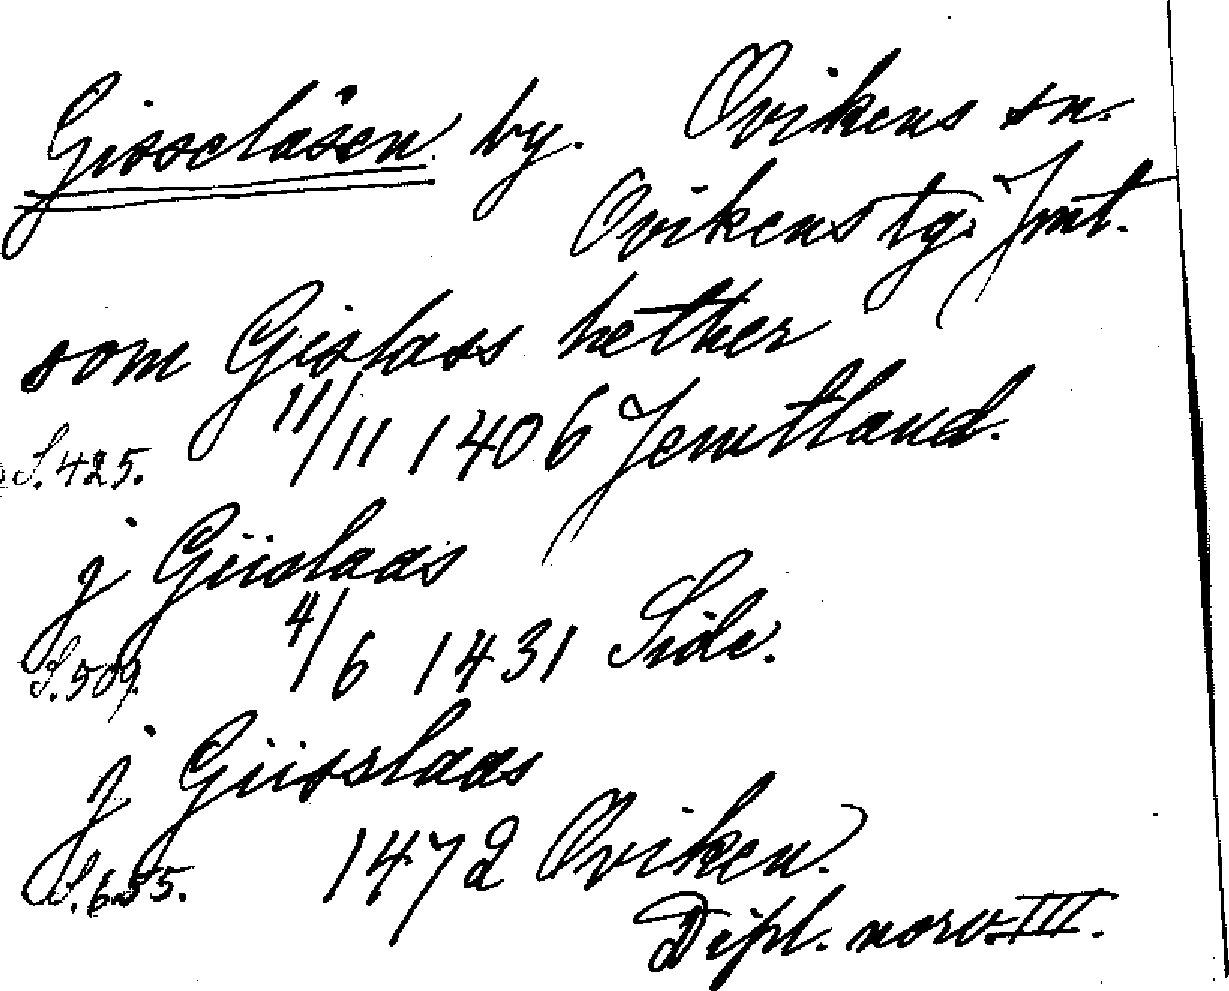 Gisselåsen by. Ovikens sn.
Ovikens tg. Jmt.
som Gislass hether
S. 425. 11/11 1406 Jemtland.
j Giislaas
S. 509. 4/6 1431 Side.
j Giisslaas
S. 655. 1472 Oviken.
Dipl. norv. III.